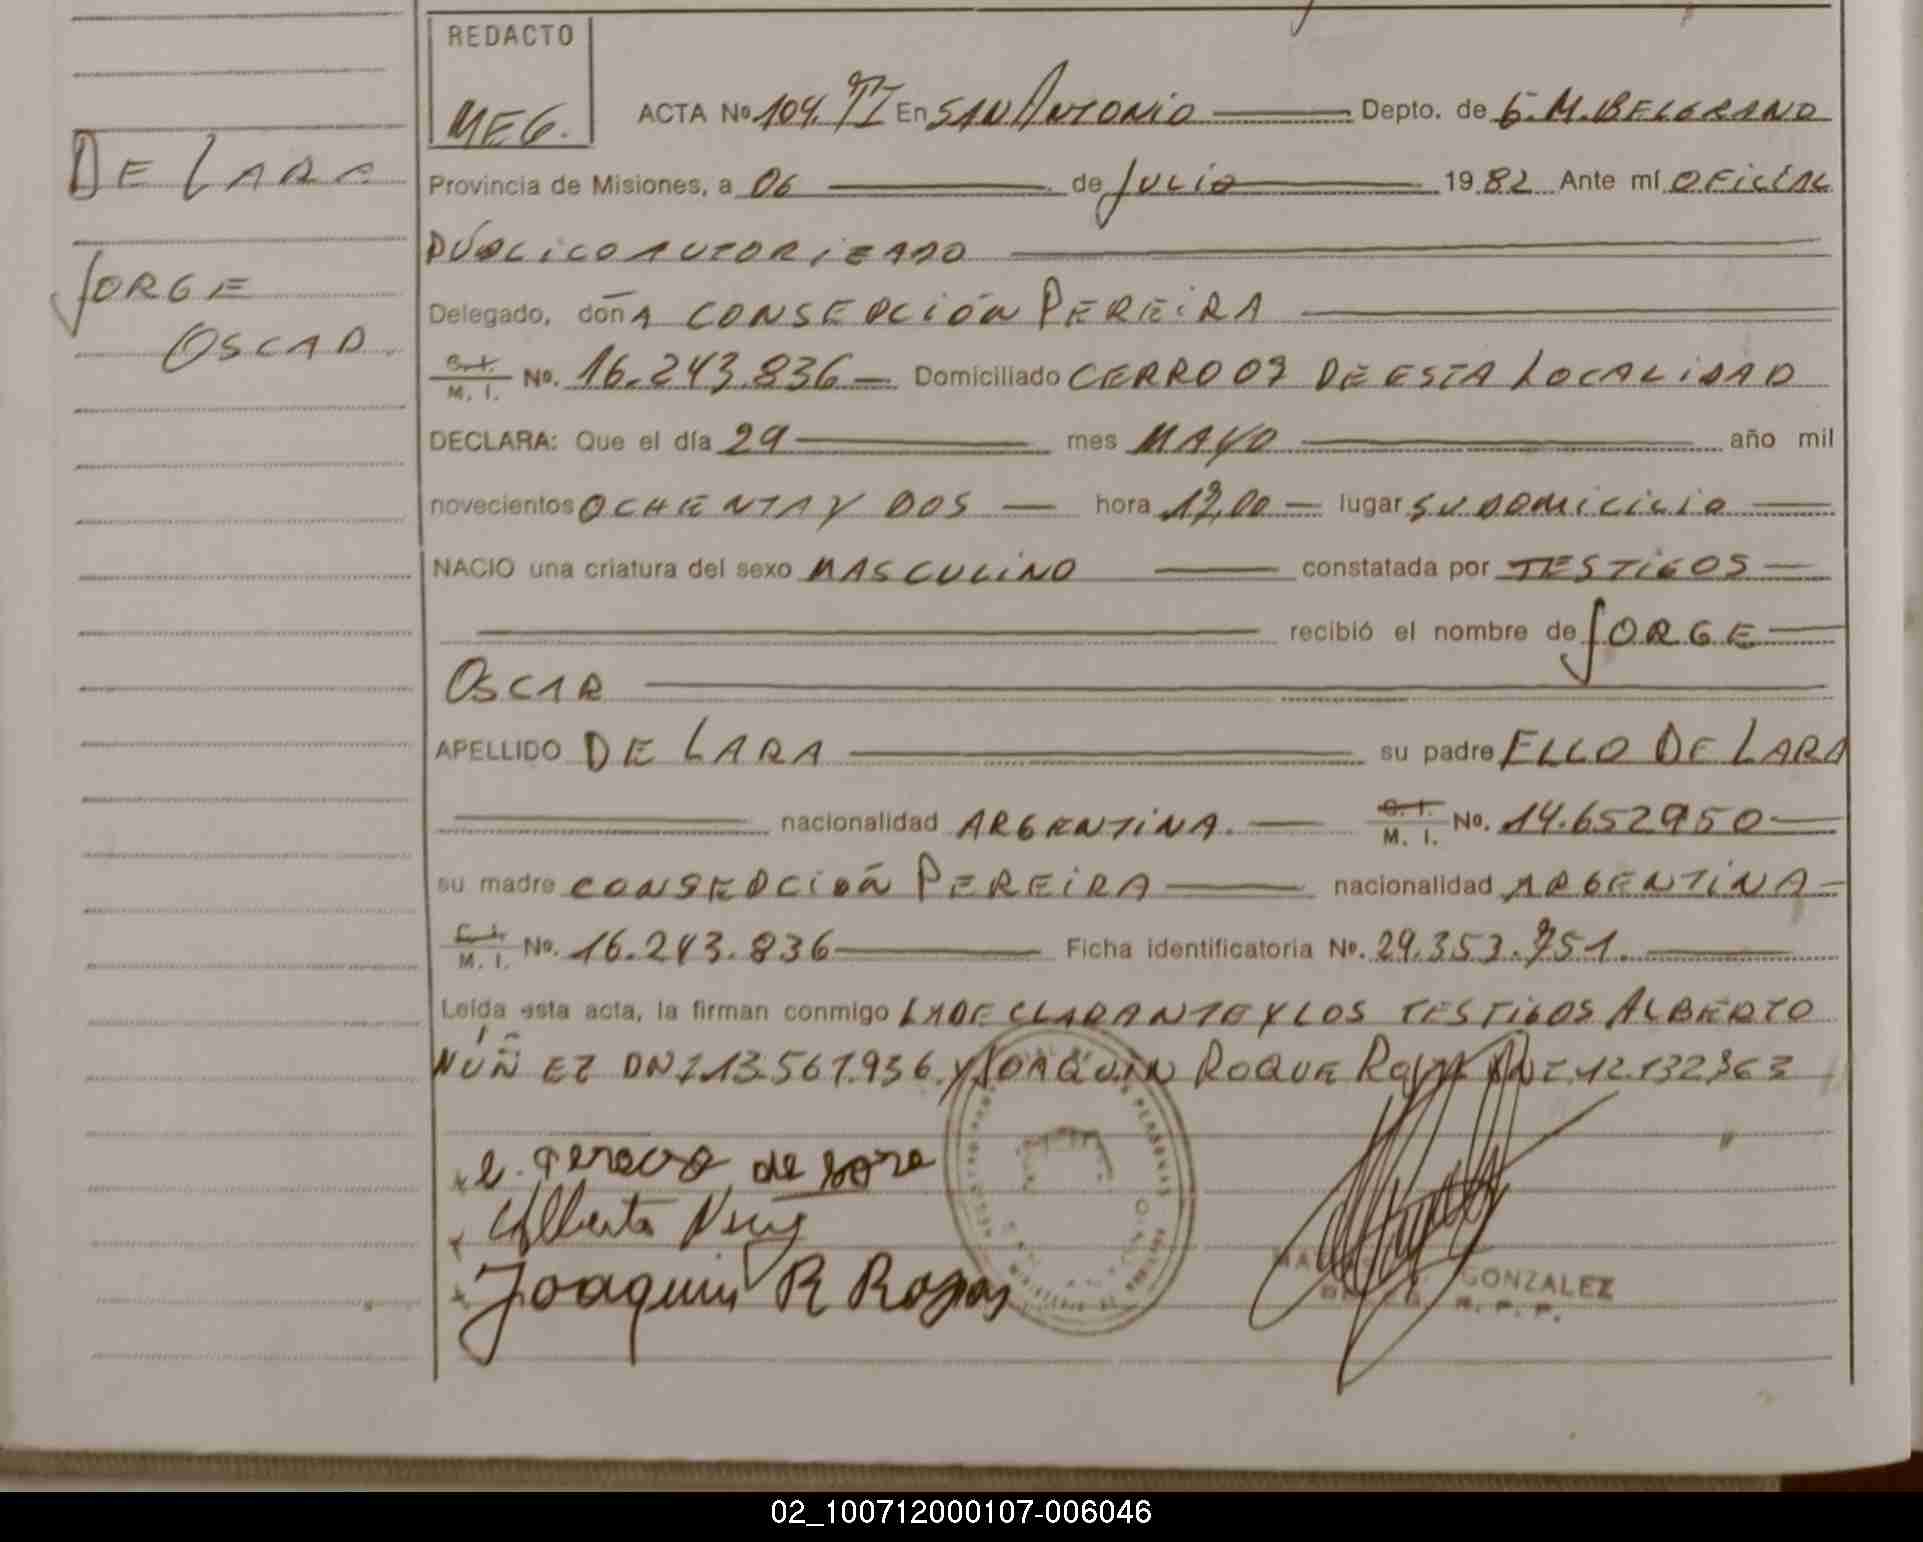 REDACTO
MEG.
ACTA Nº 104. TI En SAN ANTONIO Depto. de G. M. BELGRANO
DE LARA
Provincia de Misiones, a 06 de Julio 1982 Ante mí OFICIAL
PÚBLICO AUTORIZADO
JORGE
Delegado, doñA CONSEPCIÓN PEREIRA
OSCAR
C. I. M. I. Nº. 16.243.836 Domiciliado CERRO 07 DE ESTA LOCALIDAD
DECLARA: Que el día 29 mes MAYO año mil
novecientos OCHENTA Y DOS hora lugar SU DOMICILIO
NACIO una criatura del sexo MASCULINO constatada por TESTIGOS
recibió el nombre de JORGE
OSCAR
APELLIDO DE LARA su padre ELLO DE LARA
nacionalidad ARGENTINA. C. I. M. I. Nº. 14.652950
su madre CONSEPCIÓN PEREIRA nacionalidad ARGENTINA
C. I. M. I. Nº. 16.243.836 Ficha identificatoria Nº. 29.353.751.
Leída esta acta, la firman conmigo LA DECLARANTE Y LOS TESTIGOS ALBERTO
NÚÑEZ DNI 13.567.936 Y JOAQUIN ROQUE DNI 12.132363
de
Alberto
Joaquin R Rojas
GONZALEZ
R. P. P.
02_100712000107-006046